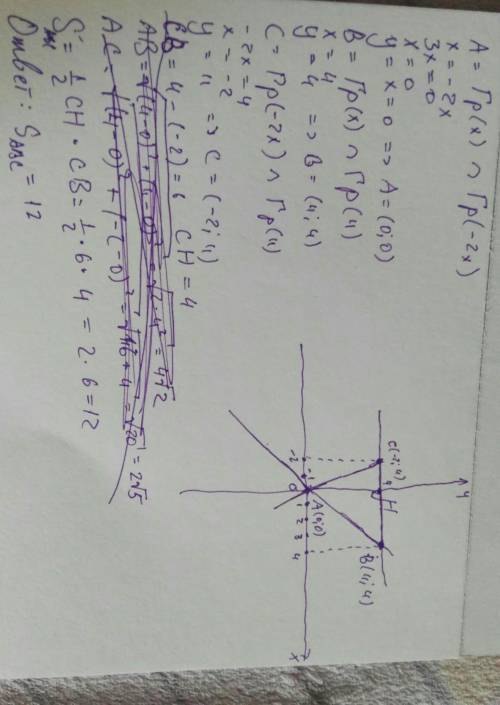 A = Гр(x) ∩ Гр(-2x)
x = -2x
3x = 0
x = 0
y = x = 0 => A = (0; 0)
B = Гр(x) ∩ Гр(4)
x = 4
y = 4 => B = (4; 4)
C = Гр(-2x) ∩ Гр(4)
-2x = 4
x = -2
y = 4 => C = (-2; 4)
CB = 4 - (-2) = 6 CH = 4
AB = √(4-0)² + (4-0)² = √2·4² = 4√2
= √16+4 = √20 = 2√5
S = 1/2 CH · CB = 1/2 · 6 · 4 = 2 · 6 = 12
Ответ: S ABC = 12
y
C(-2; 4)
4
H
B(4; 4)
-2
-1
0
A(0; 0)
1
2
3
4
x